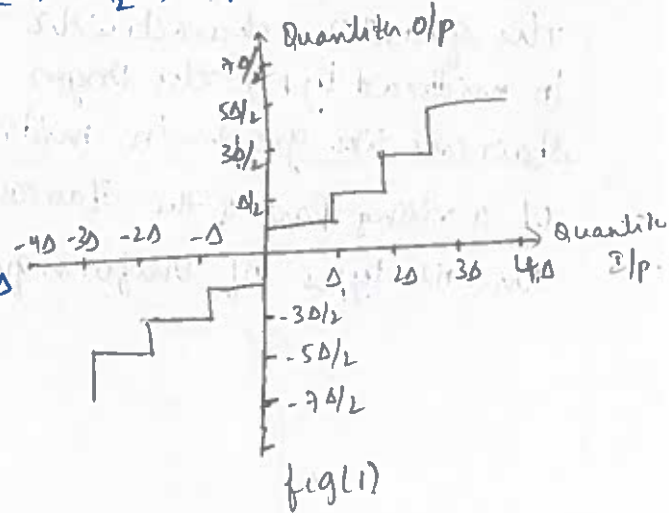 Quantiliter O/p
7Δ/2
5Δ/2
3Δ/2
Δ/2
-4Δ -3Δ -2Δ -Δ
Δ 2Δ 3Δ 4Δ
Quantile
I/p
-3Δ/2
-5Δ/2
-7Δ/2
fig(1)